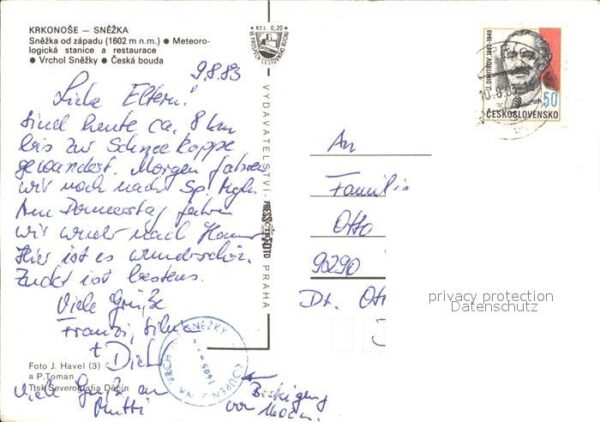 KRKONOŠE — SNĚŽKA
Sněžka od západu (1602 m n.m.) ● Meteoro-
logická stanice a restaurace
● Vrchol Sněžky ● Česká bouda
Kčs 0,20
9.8.83
Liebe Eltern!
Sind heute ca. 8 km
bis zur Schneekoppe
gewandert. Morgen fahren
wir noch nach Sp.
Am Donnerstag fahren
wir wieder nach
Hier ist es wunderschön.
Zuckt ist bestens.
Viele Grüße
Franzi, Silke
+ Dieh
Viele Grüße an
Mutti
← Besteigung
von
Foto J. Havel (3)
a P. Toman
Tisk Severografia Děčín
VYDAVATELSTVÍ PRESSFOTO PRAHA
J. DIMITROV 1882-1949
50
ČESKOSLOVENSKO
An
Familie
Otto
90290
Dt. Ott
privacy protection
Datenschutz